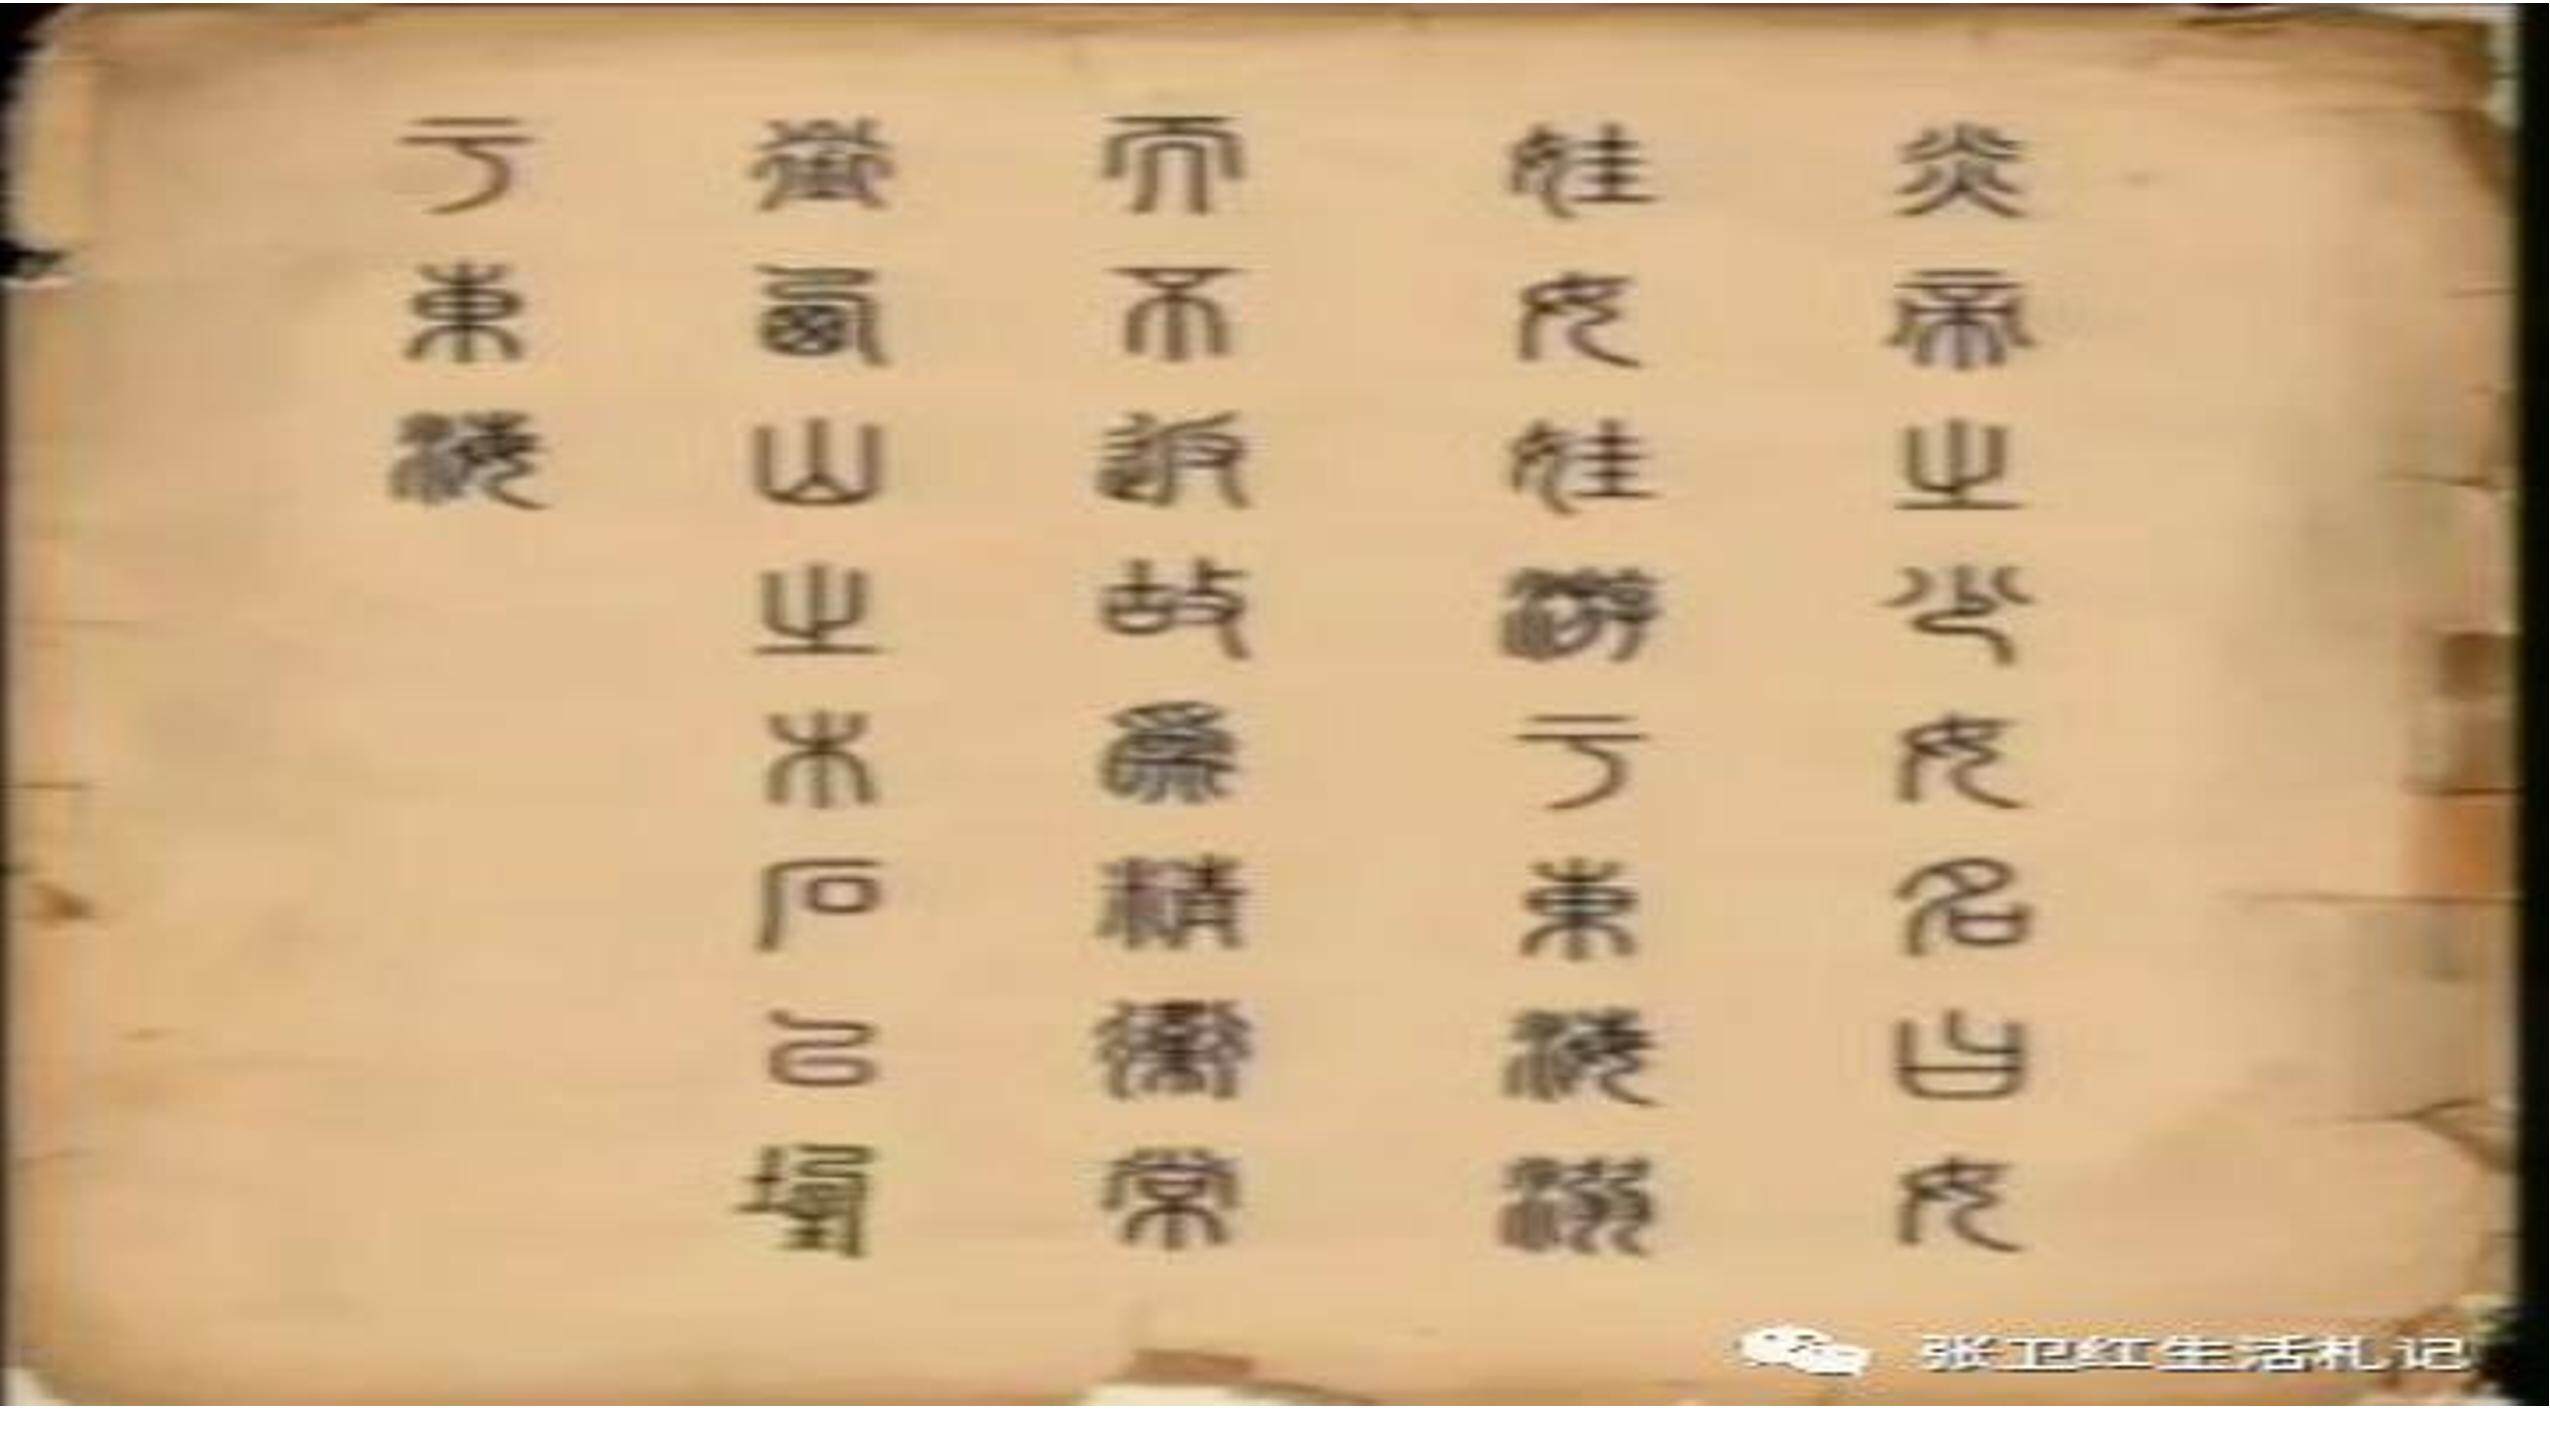 炎帝之少女名曰女
娃女娃游于東海溺
而不返故為精衛常
銜西山之木石以堙
于東海
张卫红生活札记